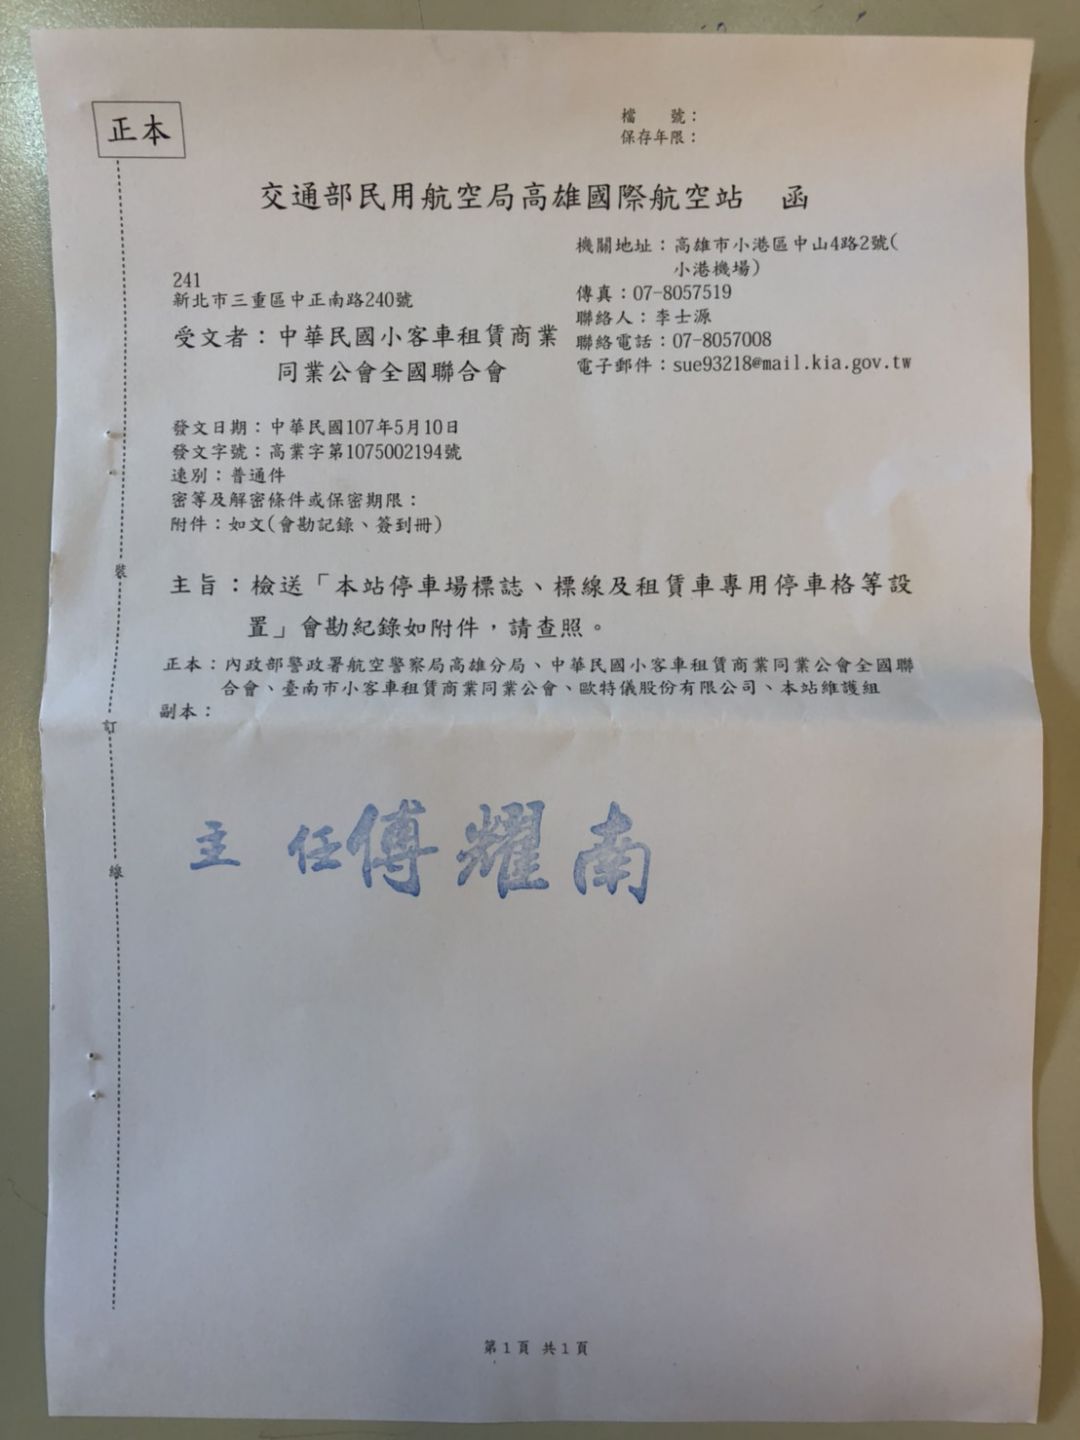 正本
檔　　號：
保存年限：
交通部民用航空局高雄國際航空站　函
機關地址：高雄市小港區中山4路2號(
小港機場)
傳真：07-8057519
聯絡人：李士源
聯絡電話：07-8057008
電子郵件：sue93218@mail.kia.gov.tw
241
新北市三重區中正南路240號
受文者：中華民國小客車租賃商業
同業公會全國聯合會
發文日期：中華民國107年5月10日
發文字號：高業字第1075002194號
速別：普通件
密等及解密條件或保密期限：
附件：如文(會勘記錄、簽到冊)
主旨：檢送「本站停車場標誌、標線及租賃車專用停車格等設
置」會勘紀錄如附件，請查照。
正本：內政部警政署航空警察局高雄分局、中華民國小客車租賃商業同業公會全國聯
合會、臺南市小客車租賃商業同業公會、歐特儀股份有限公司、本站維護組
副本：
裝
訂
線
主　任傅耀南
第1頁 共1頁